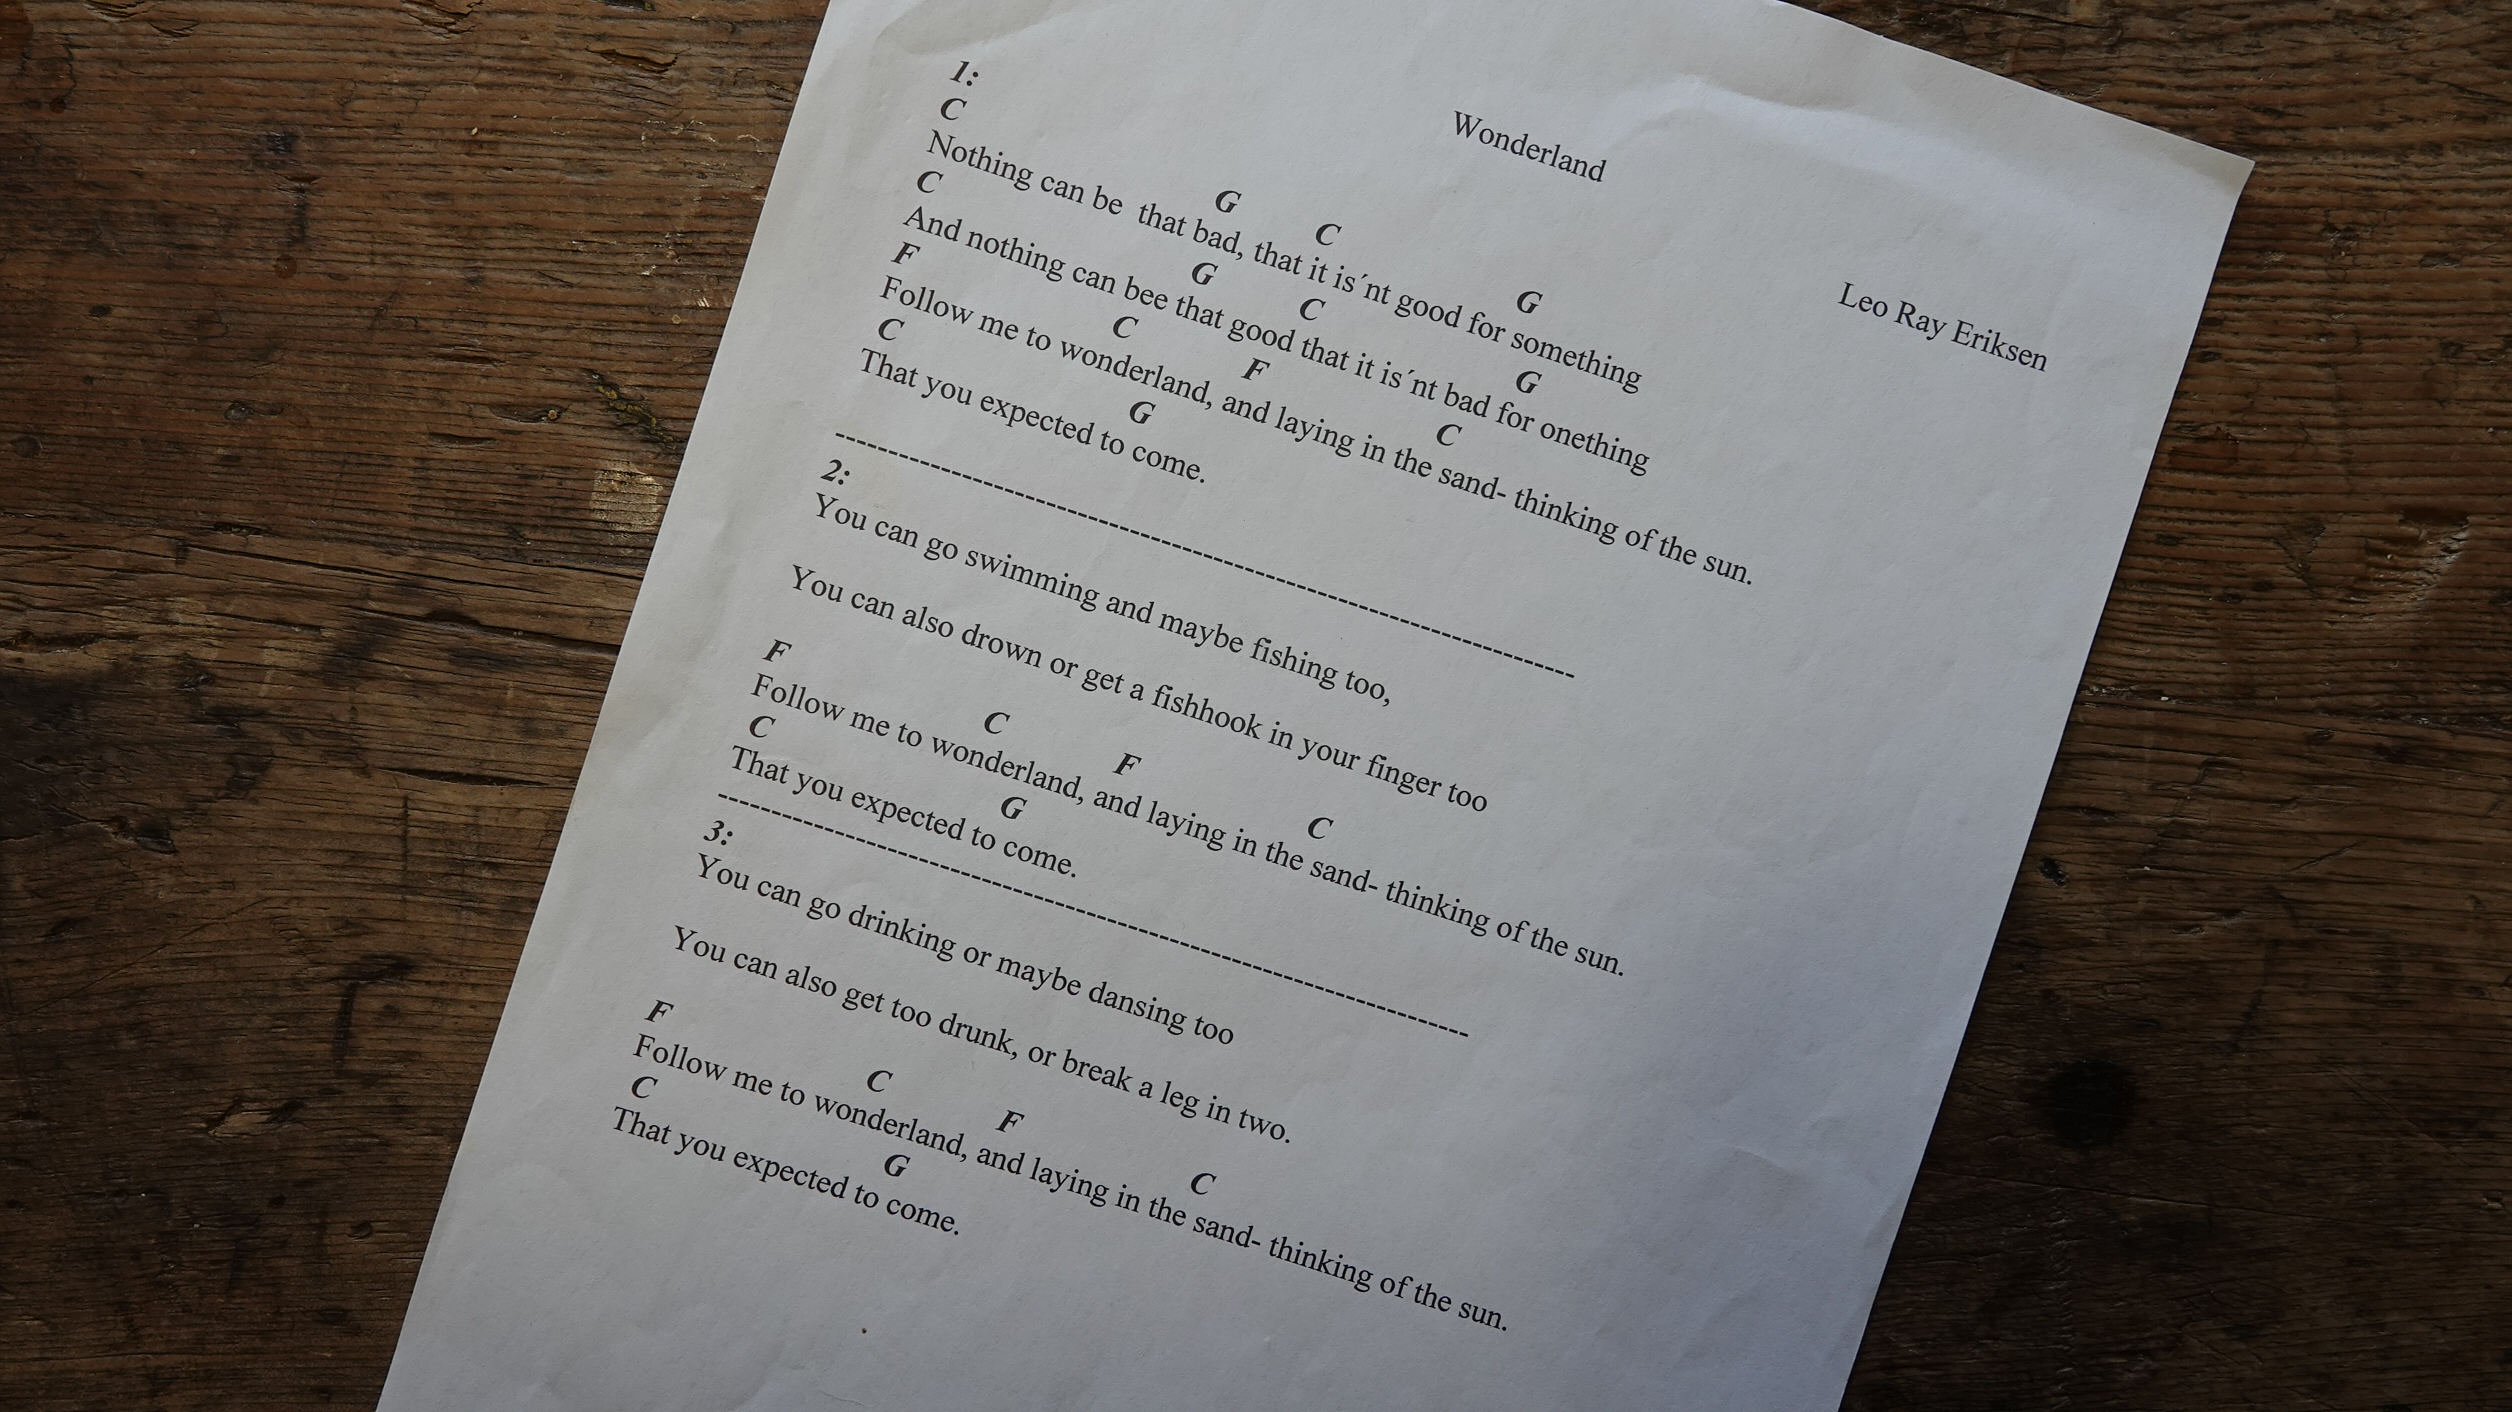 Wonderland
Leo Ray Eriksen
1:
C G C G
Nothing can be  that bad, that it is´nt good for something
C G C G
And nothing can bee that good that it is´nt bad for onething
F C F C
Follow me to wonderland, and laying in the sand- thinking of the sun.
C G
That you expected to come.
--------------------------------------------------------------------------------
2:
You can go swimming and maybe fishing too,
You can also drown or get a fishhook in your finger too
F C F C
Follow me to wonderland, and laying in the sand- thinking of the sun.
C G
That you expected to come.
--------------------------------------------------------------------------------
3:
You can go drinking or maybe dansing too
You can also get too drunk, or break a leg in two.
F C F C
Follow me to wonderland, and laying in the sand- thinking of the sun.
C G
That you expected to come.